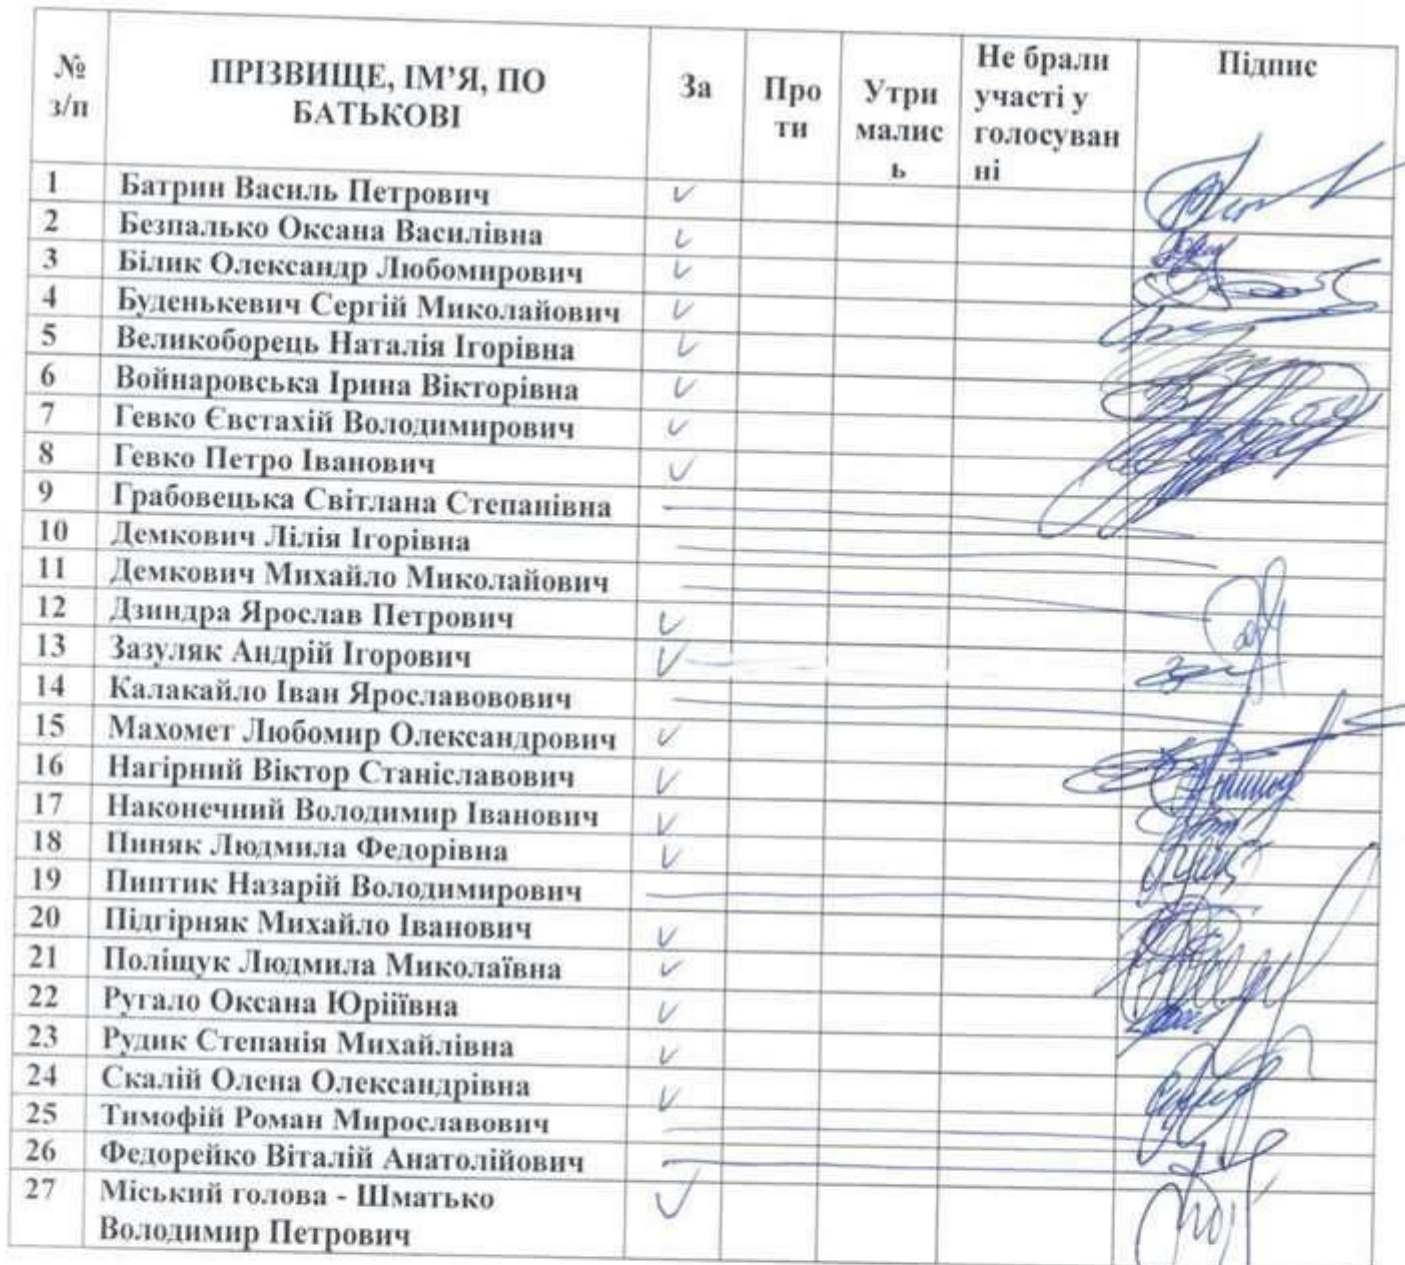 № з/п ПРІЗВИЩЕ, ІМ’Я, ПО БАТЬКОВІ За Про ти Утри малис ь Не брали участі у голосуван ні Підпис
1 Батрин Василь Петрович ✓
2 Безпалько Оксана Василівна ✓
3 Білик Олександр Любомирович ✓
4 Буденькевич Сергій Миколайович ✓
5 Великоборець Наталія Ігорівна ✓
6 Войнаровська Ірина Вікторівна ✓
7 Гевко Євстахій Володимирович ✓
8 Гевко Петро Іванович ✓
9 Грабовецька Світлана Степанівна
10 Демкович Лілія Ігорівна
11 Демкович Михайло Миколайович
12 Дзиндра Ярослав Петрович ✓
13 Зазуляк Андрій Ігорович ✓
14 Калакайло Іван Ярославовович
15 Махомет Любомир Олександрович ✓
16 Нагірний Віктор Станіславович ✓
17 Наконечний Володимир Іванович ✓
18 Пиняк Людмила Федорівна ✓
19 Пиптик Назарій Володимирович
20 Підгірняк Михайло Іванович ✓
21 Поліщук Людмила Миколаївна ✓
22 Ругало Оксана Юріїївна ✓
23 Рудик Степанія Михайлівна ✓
24 Скалій Олена Олександрівна ✓
25 Тимофій Роман Мирославович
26 Федорейко Віталій Анатолійович
27 Міський голова - Шматько ✓
Володимир Петрович